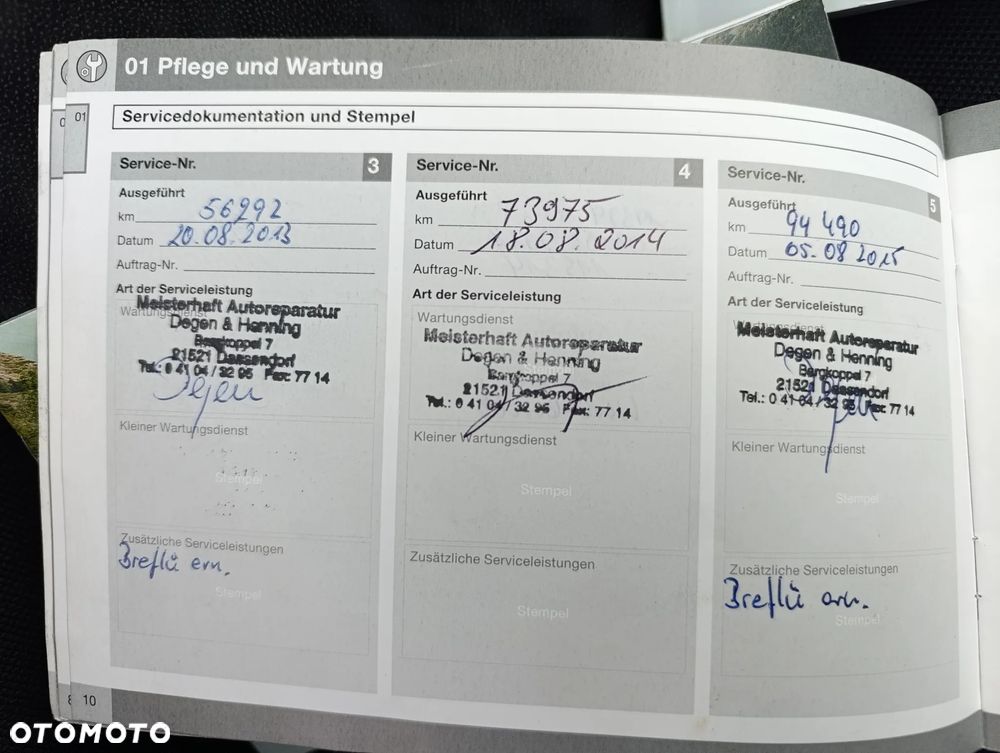 01 Pflege und Wartung
01
Servicedokumentation und Stempel
Service-Nr. 3
Ausgeführt
km 56292
Datum 20.08.2013
Auftrag-Nr.
Art der Serviceleistung
Wartungsdienst
Meisterhaft Autoreparatur
Degen & Henning
Bergkoppel 7
21521 Dassendorf
Tel.: 0 41 04 / 32 95 Fax: 77 14
Kleiner Wartungsdienst
Stempel
Zusätzliche Serviceleistungen
Breflü ern.
Stempel
Service-Nr. 4
Ausgeführt
km 73975
Datum 18.08.2014
Auftrag-Nr.
Art der Serviceleistung
Wartungsdienst
Meisterhaft Autoreparatur
Degen & Henning
Bergkoppel 7
21521 Dassendorf
Tel.: 0 41 04 / 32 95 Fax: 77 14
Kleiner Wartungsdienst
Stempel
Zusätzliche Serviceleistungen
Stempel
Service-Nr. 5
Ausgeführt
km 94 490
Datum 05.08 2015
Auftrag-Nr.
Art der Serviceleistung
Meisterhaft Autoreparatur
Degen & Henning
Bergkoppel 7
21521 Dassendorf
Tel.: 0 41 04 / 32 95 Fax: 77 14
Kleiner Wartungsdienst
Stempel
Zusätzliche Serviceleistungen
Breflü ern.
Stempel
8 10
OTOMOTO